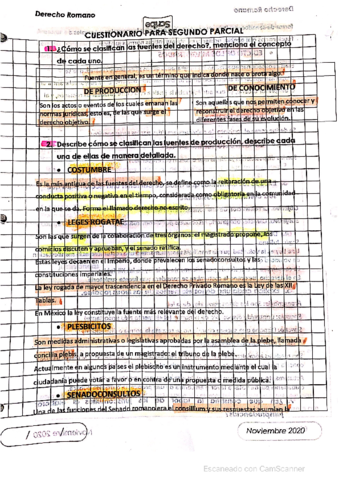 Derecho Romano
CUESTIONARIO PARA SEGUNDO PARCIAL
1. ¿Cómo se clasifican las fuentes del derecho?, menciona el concepto
de cada uno.
Fuente en general, es un término que indica donde nace o brota algo.
DE PRODUCCION DE CONOCIMIENTO
Son los actos o eventos de los cuales emanan las
normas jurídicas, esto es, de las que surge el
derecho objetivo.
Son aquellas que nos permiten conocer y
reconstruir el derecho objetivo en las
diferentes fases de su evolución.
2. Describe cómo se clasifican las fuentes de producción, describe cada
una de ellas de manera detallada.
• COSTUMBRE
Es la más antigua de las fuentes del derecho, se define como la reiteración de una
conducta positiva o negativa en el tiempo, considerada como obligatoria en la comunidad
en la que se da. Forma el llamado derecho no escrito.
• LEGES ROGATAE
Son las que surgen de la colaboración de tres órganos: el magistrado propone, los
comicios discuten y aprueban, y el senado ratifica.
Estas leyes decaen en el Imperio, donde prevalecen los senadoconsultos y las
constituciones imperiales.
La ley rogada de mayor trascendencia en el Derecho Privado Romano es la Ley de las XII
tablas.
En México la ley constituye la fuente más relevante del derecho.
• PLESBICITOS
Son medidas administrativas o legislativas aprobadas por la asamblea de la plebe, llamada
concilia plebis, a propuesta de un magistrado: el tribuno de la plebe.
Actualmente en algunos países el plebiscito es un instrumento mediante el cual la
ciudadanía puede votar a favor o en contra de una propuesta o medida pública.
• SENADOCONSULTOS
Una de las funciones del Senado romano era el consilium y sus respuestas asumían la
Noviembre 2020
Escaneado con CamScanner